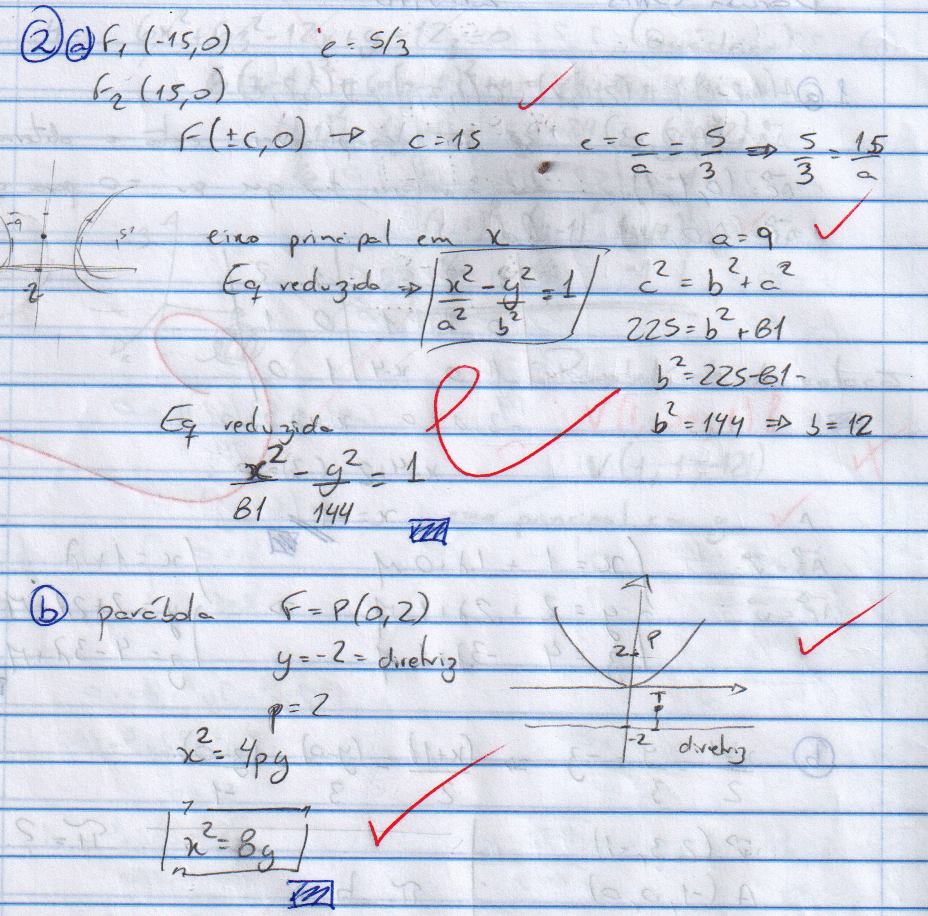 2 a) F₁ (-15,0) e = 5/3
F₂ (15,0)
F(±c, 0) → c = 15 e = c/a = 5/3 ⇒ 5/3 = 15/a
eixo principal em x a = 9
Eq reduzida ⇒ x²/a² - y²/b² = 1 c² = b² + a²
225 = b² + 81
b² = 225 - 81
Eq reduzida b² = 144 ⇒ b = 12
x²/81 - y²/144 = 1
b) parábola F = P(0,2)
y = -2 = diretriz
2 P
p = 2
x² = 4py
-2 diretriz
x² = 8y